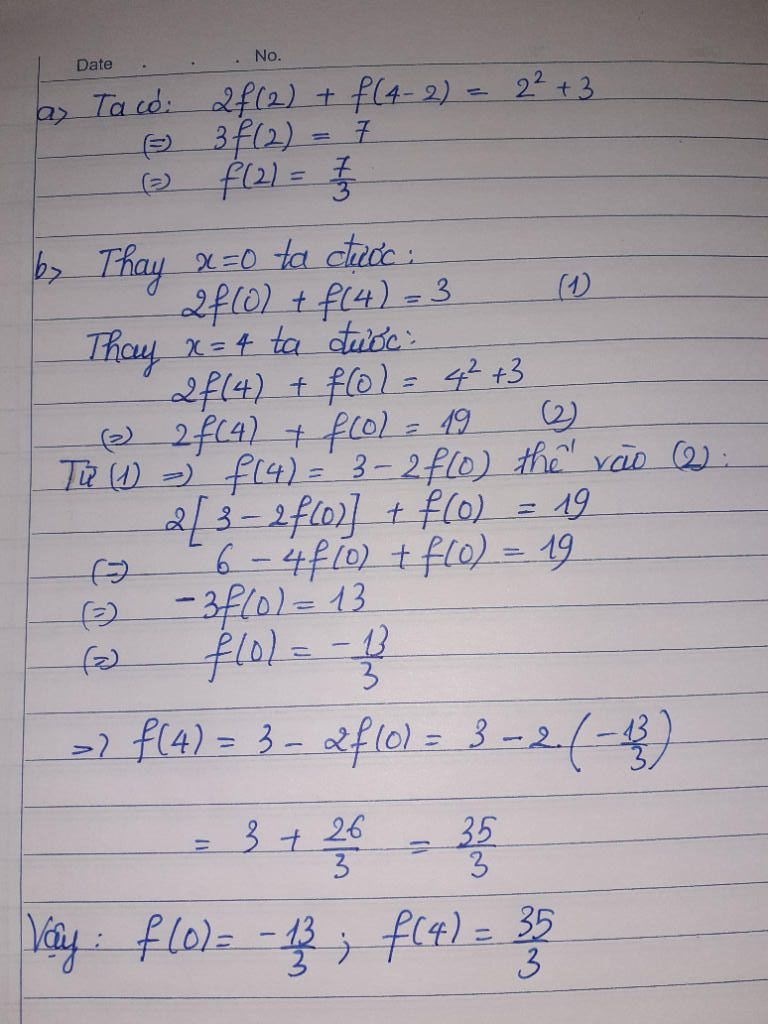 Date . . . No.
a> Ta có: 2f(2) + f(4-2) = 2² + 3
(=) 3f(2) = 7
(=) f(2) = 7/3
b> Thay x=0 ta được:
2f(0) + f(4) = 3 (1)
Thay x=4 ta được:
2f(4) + f(0) = 4² +3
(=) 2f(4) + f(0) = 19 (2)
Từ (1) => f(4) = 3 - 2f(0) thế vào (2):
2[3 - 2f(0)] + f(0) = 19
(=) 6 - 4f(0) + f(0) = 19
(=) -3f(0) = 13
(=) f(0) = -13/3
=> f(4) = 3 - 2f(0) = 3 - 2.(-13/3)
= 3 + 26/3 = 35/3
Vậy: f(0) = -13/3 ; f(4) = 35/3